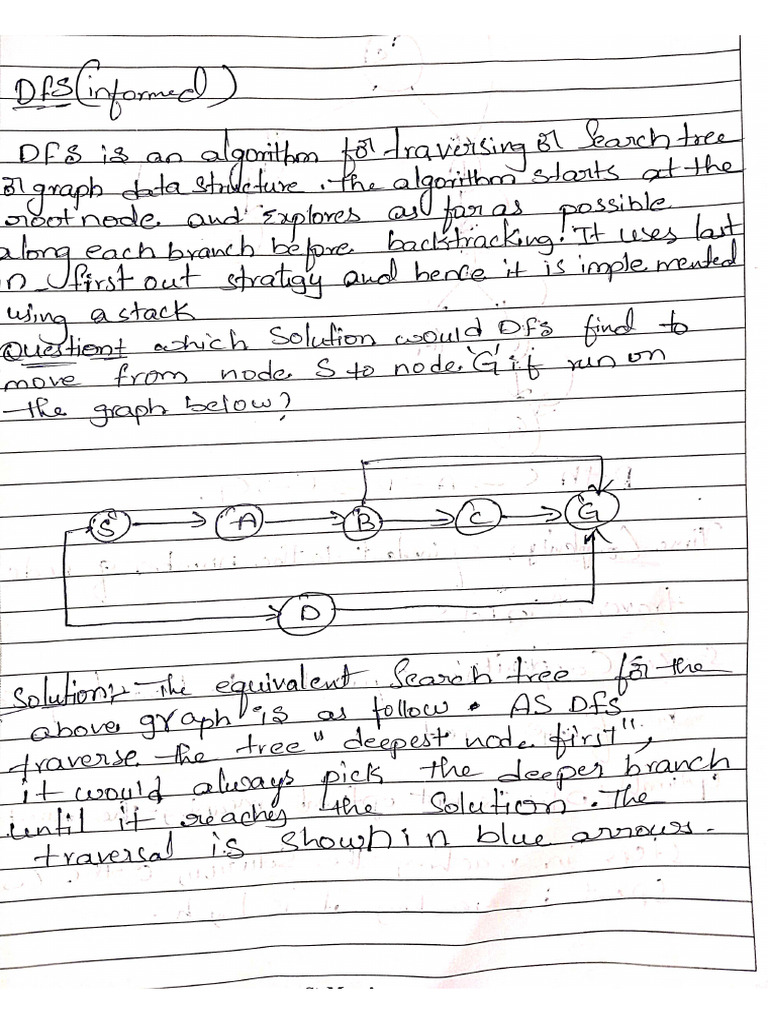 DFS (informed)
DFS is an algorithm for traversing or Search tree
or graph data structure. The algorithm starts at the
root node and Explores as far as possible
along each branch before backtracking. It uses last
in - first out stratigy and hence it is implemented
using a stack
Question:- which Solution would DFS find to
move from node S to node 'G' if run on
the graph below?
S A B C G
D
Solution:- The equivalent Search tree for the
above graph is as follow. AS DFS
traverse the tree "deepest node first",
it would always pick the deeper branch
until it reaches the Solution. The
traversal is shown in blue arrows.